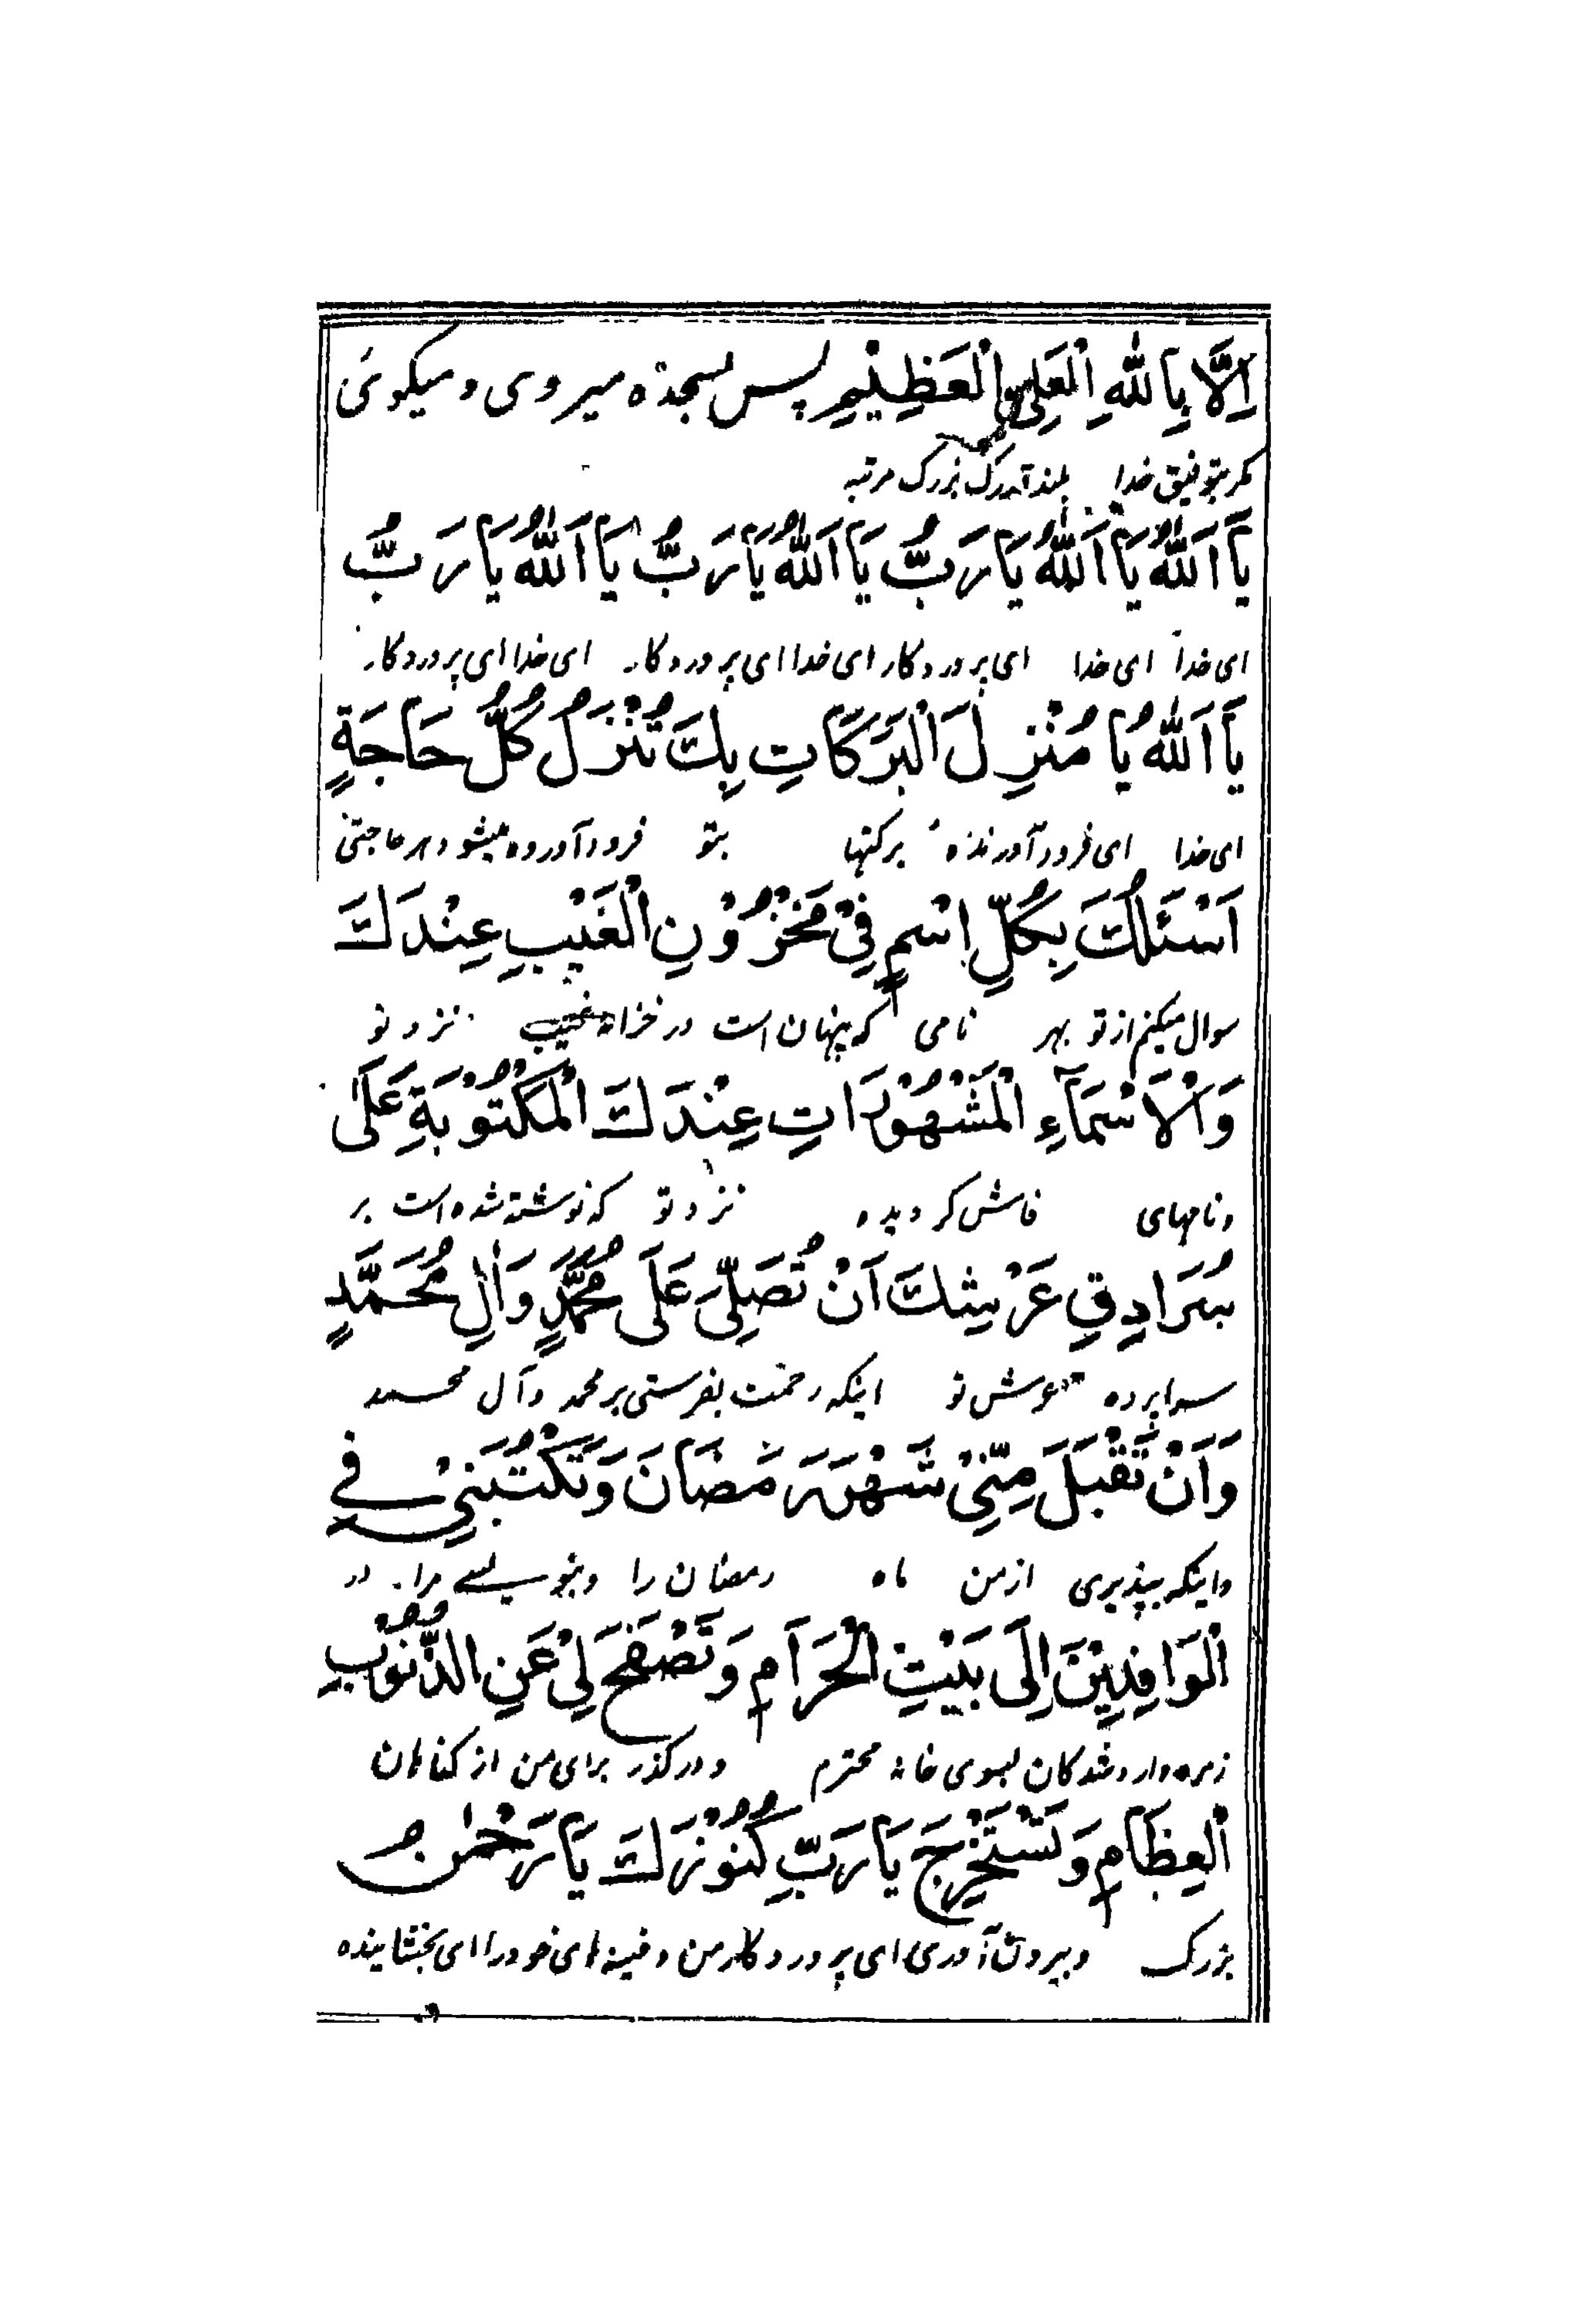 اِلَّا بِاللهِ الْعَلِيِّ الْعَظِيْمِ پس بسجده میروی و میگوئی
مگر بتوفیق خدا بلند قدر بزرگ مرتبه
يَا اَللهُ يَا اَللهُ يَا رَبُّ يَا اَللهُ يَا رَبُّ يَا اَللهُ يَا رَبُّ
ای خدا ای خدا ای پروردگار ای خدا ای پروردگار ای خدا ای پروردگار
يَا اَللهُ يَا مُنْزِلَ الْبَرَكَاتِ بِكَ تُنْزَلُ كُلُّ حَاجَةٍ
ای خدا ای فرود آورنده برکتها بتو فرود آورده میشود هر حاجتی
اَسْئَلُكَ بِكُلِّ اسْمٍ فِيْ مَخْزُوْنِ الْغَيْبِ عِنْدَكَ
سوال میکنم از تو بهر نامی که پنهان است در خزانه غیب نزد تو
وَالْاَسْمَآءِ الْمَشْهُوْرَاتِ عِنْدَكَ الْمَكْتُوْبَةِ عَلٰى
و نامهای فاش گردیده نزد تو که نوشته شده است بر
سُرَادِقِ عَرْشِكَ اَنْ تُصَلِّيَ عَلٰى مُحَمَّدٍ وَاٰلِ مُحَمَّدٍ
سراپرده عرش تو اینکه رحمت بفرستی بر محمد و آل محمد
وَاَنْ تَقْبَلَ مِنِّيْ شَهْرَ رَمَضَانَ وَتَكْتُبَنِيْ فِي
و اینکه بپذیری از من ماه رمضان را و بنویسی مرا در
الْوَافِدِيْنَ اِلَى بَيْتِ الْحَرَامِ وَتَصْفَحَ لِيْ عَنِ الذُّنُوْبِ
زمره وارد شدگان بسوی خانه محترم و درگذر برای من از گناهان
الْعِظَامِ وَتَسْتَخْرِجَ يَا رَبِّ كُنُوْزَكَ يَا رَحْمٰنُ
بزرگ و بیرون آوری ای پروردگار من دفینه های خود را ای بخشاینده